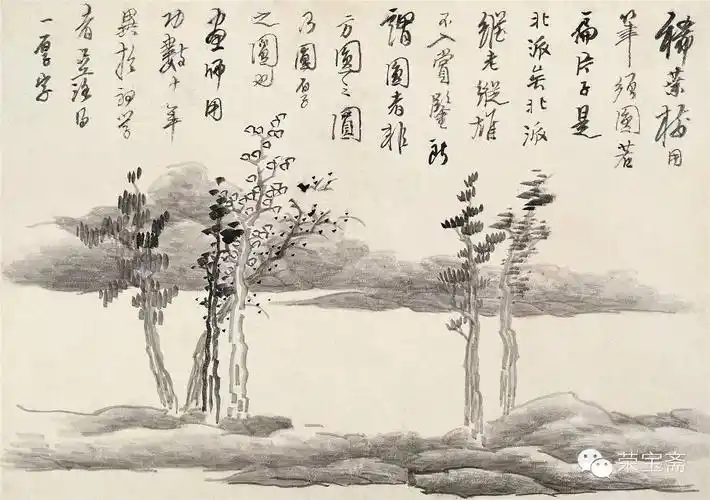 稀葉樹用
筆須圓若
扁片子是
北派矣北派
縱老縱雄
不入賞鑒所
謂圓者非
方圓之圓
乃圓厚
之圓也
畫師用
功數十年
異於初學
者落得
一厚字
荣宝斋